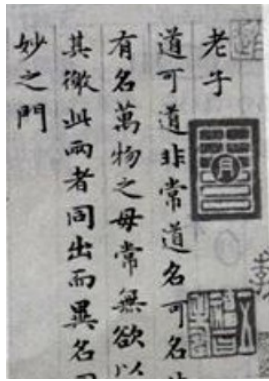 老子
道可道非常道名可名
有名萬物之母常無欲以
其徼此兩者同出而異名
妙之門